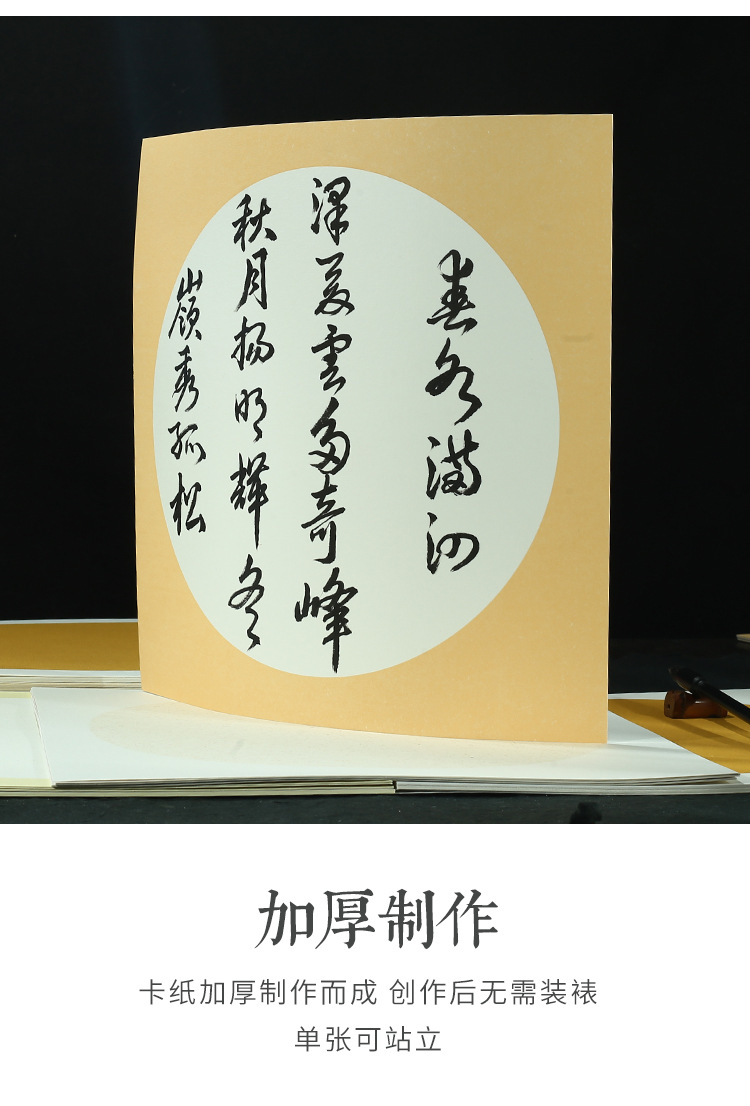 春水滿泗
澤夏雲多奇峰
秋月揚明輝冬
嶺秀孤松
加厚制作
卡纸加厚制作而成 创作后无需装裱
单张可站立